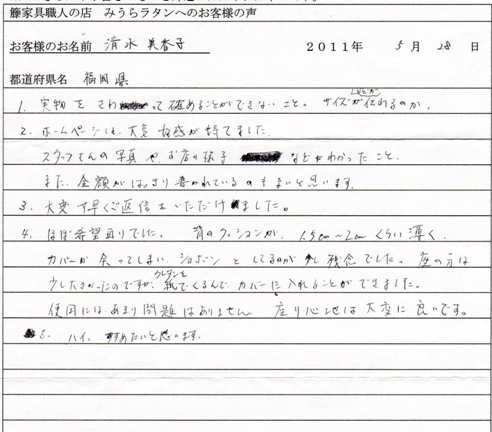 籐家具職人の店　みうらラタンへのお客様の声
お客様のお名前　清水 美香子　2011年 5月 28日
都道府県名　福岡県
1. 実物をさわって確めることができないこと。サイズがほんとうに伝わるのか。
2. ホームページは、大変 好感が持てました。
スタッフさんの写真やお店の様子などがわかったこと。
また、金額がはっきり書かれているのもよいと思います。
3. 大変 早くご返信をいただけました。
4. ほぼ希望通りでした。背のクッションが、1.5cm〜2cmくらい薄く、
カバーが余ってしまい、ショボンとしてるのが少し残念でした。座の方は
少し大きかったのですが、ウレタンを紙でくるんで、カバーに入れることができました。
使用にはあまり問題はありません。座り心地は大変に良いです。
5. ハイ、すすめたいと思います。